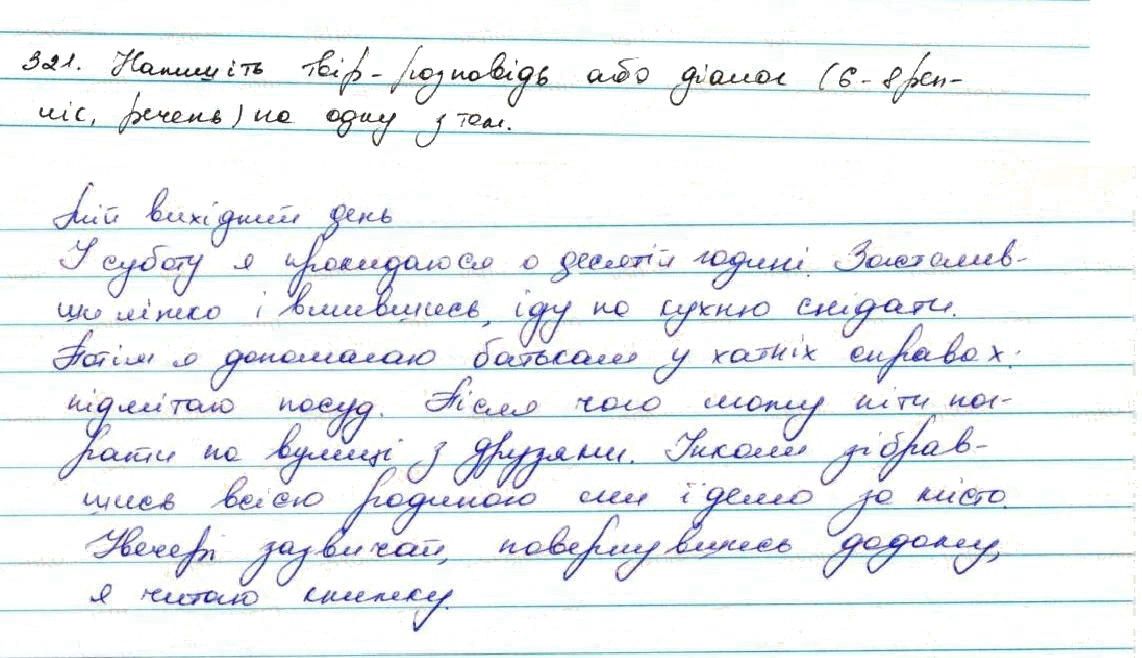 321. Напишіть твір-розповідь або діалог (6-8 реп-
лік, речень) на одну з тем.
Мій вихідний день
У суботу я прокидаюся о десятій годині. Застелив-
ши ліжко і вмившись, іду на кухню снідати.
Потім я допомагаю батькам у хатніх справах:
підмітаю посуд. Після чого можу піти пог-
рати на вулиці з друзями. Інколи зібрав-
шись всією родиною ми їдемо за місто.
Увечері зазвичай, повернувшись додому,
я читаю книжку.